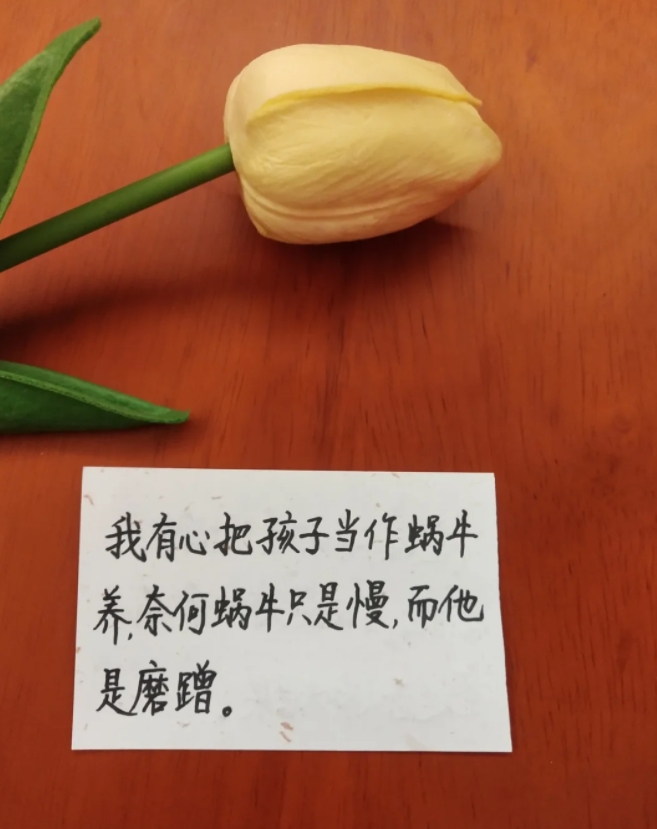 我有心把孩子当作蜗牛
养,奈何蜗牛只是慢,而他
是磨蹭。